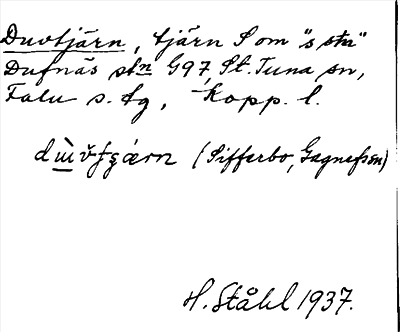 Duvtjärn, tjärn S om "s stn"
Dufnäs stn G97, St. Tuna sn,
Falu s. fg, Kopp. l.
(Sifferbo, Gagnefs sn)
H. Ståhl 1937.